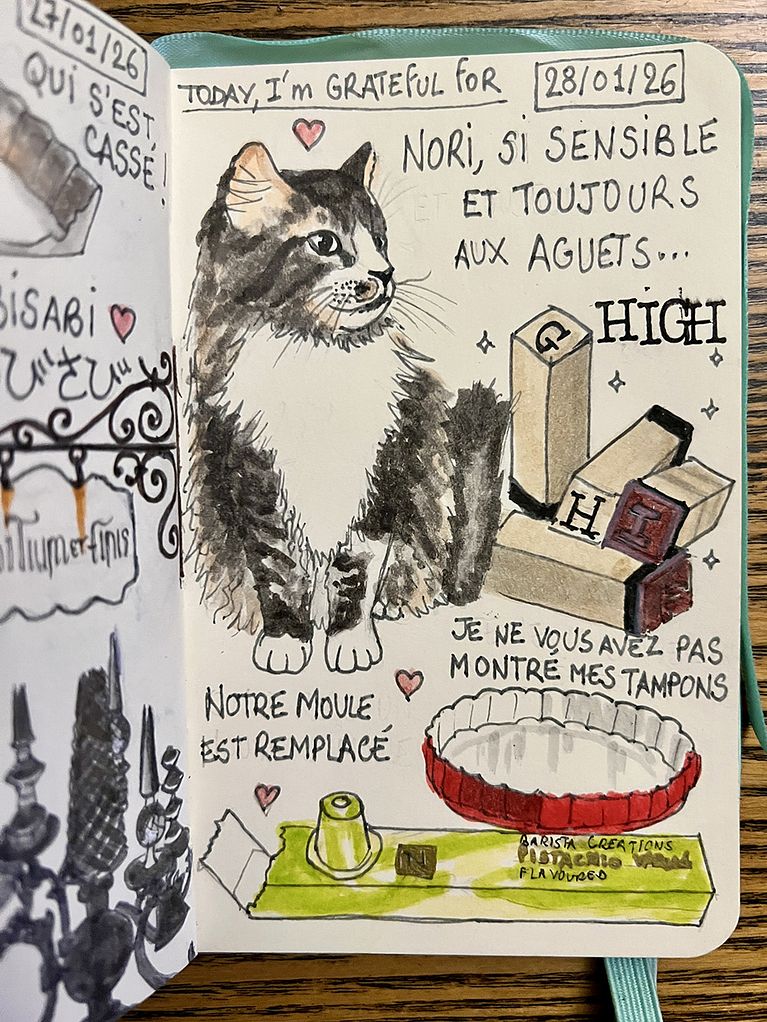 27/01/26
QUI S'EST
CASSÉ!
BISABI
びさび
ET FINIS
TODAY, I'M GRATEFUL FOR
28/01/26
NORI, SI SENSIBLE
ET TOUJOURS
AUX AGUETS...
HIGH
G
H
I
JE NE VOUS AVEZ PAS
MONTRÉ MES TAMPONS
NOTRE MOULE
EST REMPLACÉ
N
BARISTA CREATIONS
PISTACHIO
FLAVOURED